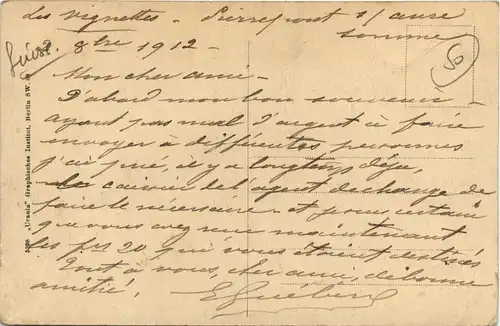 Les Vignettes - Pierrepont s/ avre
Somme
8bre 1912 -
50
Mon cher ami -
D'abord mon bon souvenir -
ayant pas mal d'argent à faire
envoyer à différentes personnes
j'ai prié, il y a longtemps déjà,
caissier de l'agent de change de
faire le nécessaire - et pour certain
que vous avez reçu maintenant
les frs 20 qui vous étaient destinés
Tout à vous, cher ami, de bonne
amitié.
"Urania" Graphisches Institut, Berlin SW.